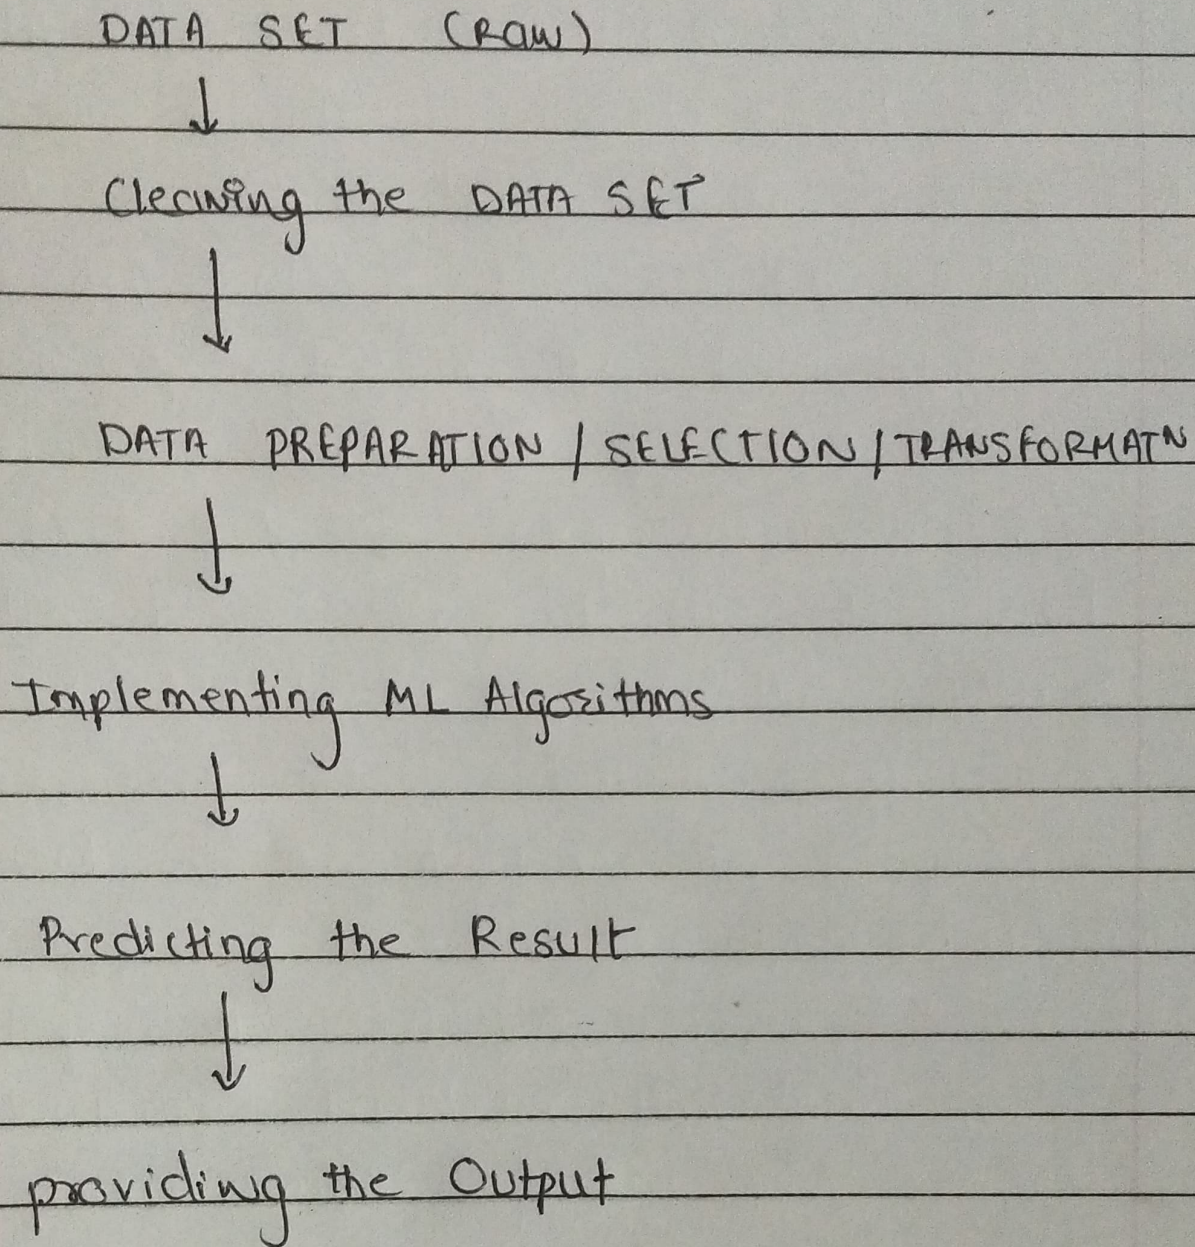 DATA SET (Raw)
↓
Cleaning the DATA SET
↓
DATA PREPARATION / SELECTION / TRANSFORMATN
↓
Implementing ML Algorithms
↓
Predicting the Result
↓
providing the Output